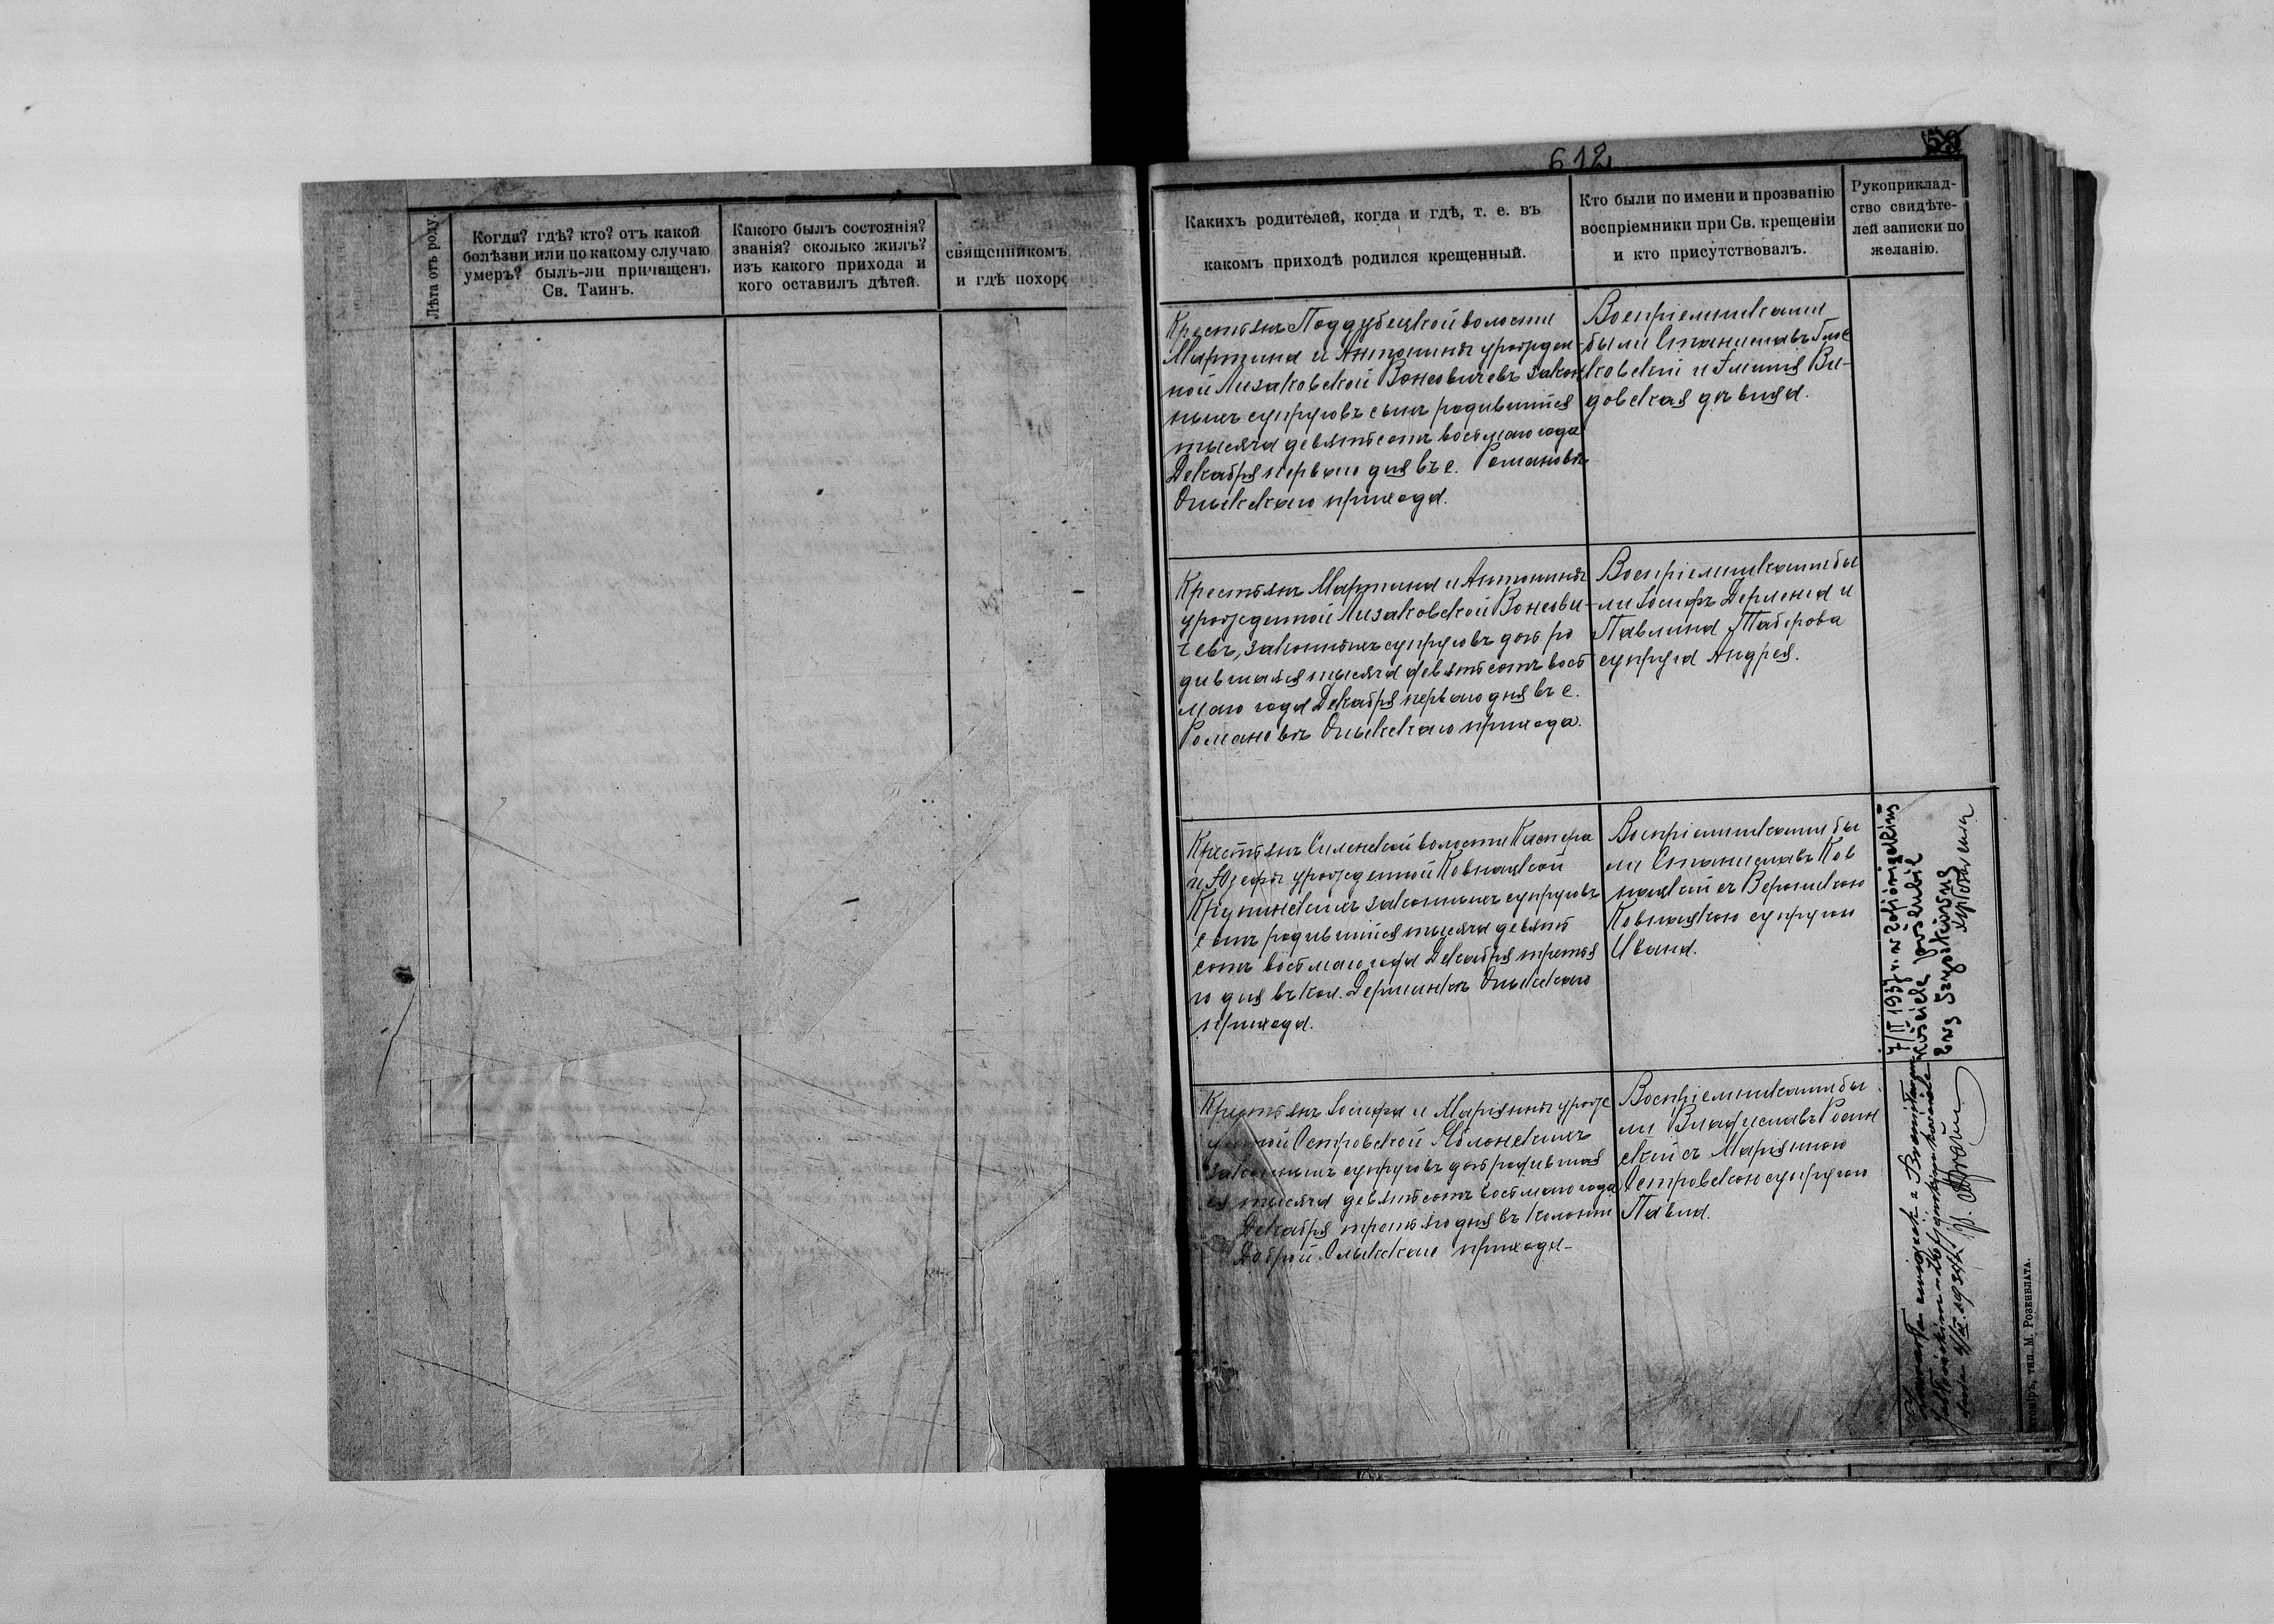 612
59
Лѣта отъ роду.
Когда? гдѣ? кто? отъ какой
болѣзни или по какому случаю
умеръ? былъ-ли причащенъ
Св. Таинъ.
Какого былъ состоянія?
званія? сколько жилъ?
изъ какого прихода и
кого оставилъ дѣтей.
священникомъ
и гдѣ похоро
Какихъ родителей, когда и гдѣ, т. е. въ
какомъ приходѣ родился крещенный.
Кто были по имени и прозванію
воспріемники при Св. крещеніи
и кто присутствовалъ.
Рукоприклад-
ство свидѣте-
лей записки по
желанію.
Крестьянъ Поддубецкой волости
Мартина и Антонины урожден
ной Лизаковской Вонсовичевъ закон
ныхъ супруговъ сынъ родившійся
тысяча девятьсотъ восьмаго года
Декабря перваго дня въ с. Романовѣ
Олыкскаго прихода.
Воспріемниками
были Станиславъ
ковскій и Эмилія Ви-
довская дѣвица.
Крестьянъ Мартина и Антонины
урожденной Лизаковской Вонсови-
чевъ, законныхъ супруговъ дочь ро
дившаяся тысяча девятьсотъ вось
маго года Декабря перваго дня въ с.
Романовѣ Олыкскаго прихода.
Воспріемниками бы
ли Іосифъ и
Павлина
супруга Андрея.
Крестьянъ Силенской волости Каспера
и Юзефы урожденной Ковнацкой
Крупинскихъ законныхъ супруговъ
сынъ родившійся тысяча девять
сотъ восьмаго года Декабря третья
го дня въ кол. Дерманкѣ Олыкскаго
прихода.
Воспріемниками бы
ли Станиславъ Ков
нацкій съ Вероникою
Ковнацкою супругою
Ивана.
7/II 1937 r. w
kościele poślubił
Крестьянъ Іосифа и Маріянны урож
Островской Яблонскихъ
законныхъ супруговъ дочь родившая
ся тысяча девятьсотъ восьмаго года
Декабря третьяго дня въ колоніи
Доброй Олыкскаго прихода
Воспріемниками бы
ли Владиславъ Росин
скій съ Маріянною
Островскою супругою
Павла.
тип. М. Розенблата.